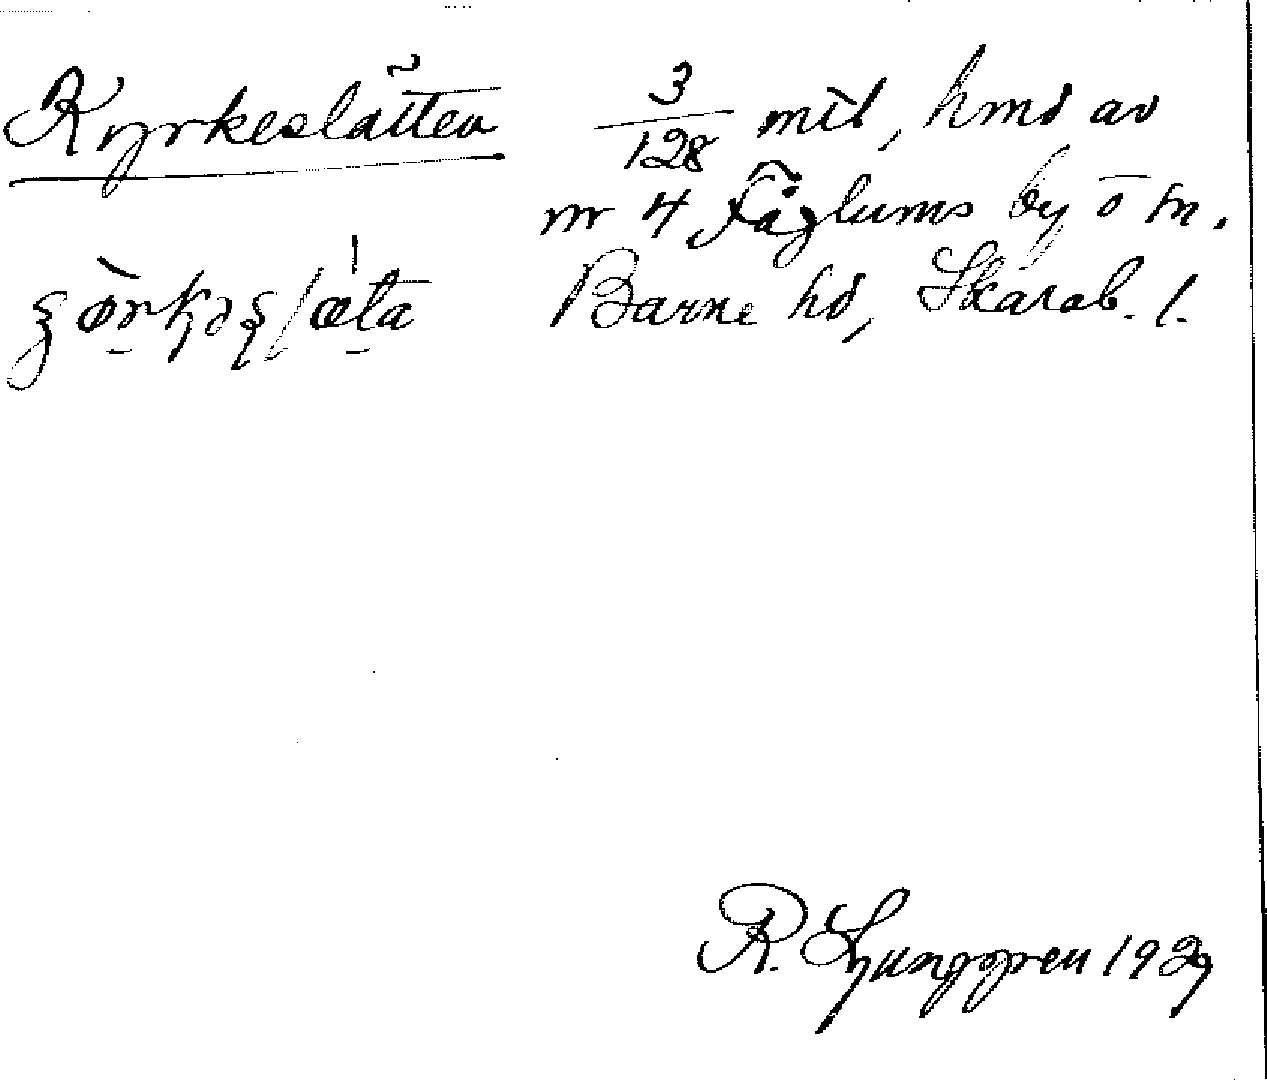 Kyrkeslätten 3/128 mtl, hmd av
nr 4 Fåglums by o sn.
Barne hd, Skarab. l.
R. Ljunggren 1929